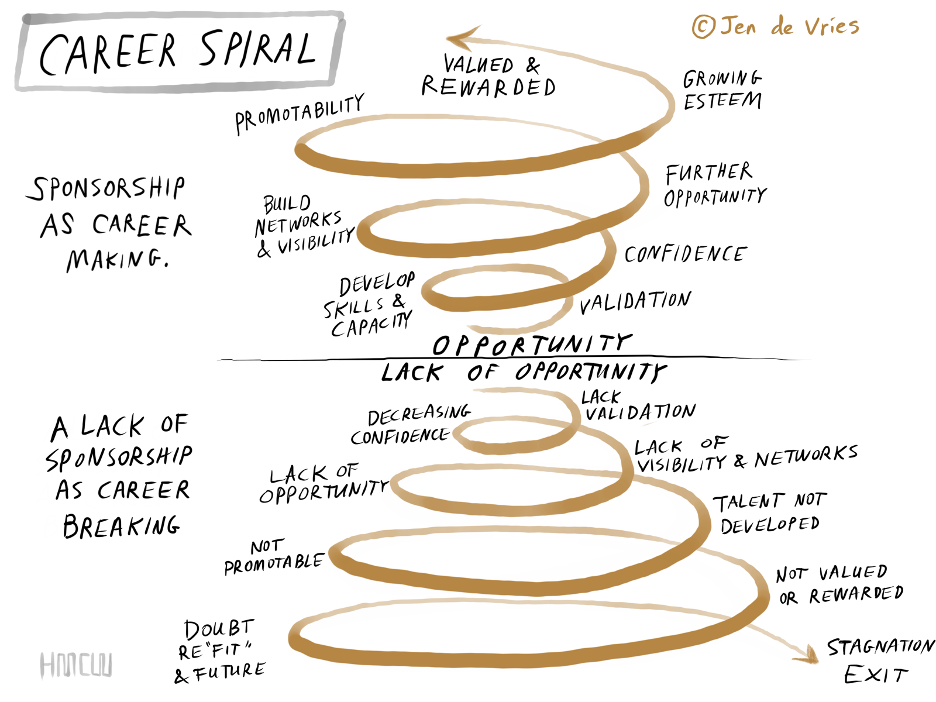 CAREER SPIRAL
© Jen de Vries
VALUED &
REWARDED
GROWING
ESTEEM
PROMOTABILITY
FURTHER
OPPORTUNITY
SPONSORSHIP
AS CAREER
MAKING.
BUILD
NETWORKS
& VISIBILITY
CONFIDENCE
DEVELOP
SKILLS &
CAPACITY
VALIDATION
OPPORTUNITY
LACK OF OPPORTUNITY
LACK
VALIDATION
DECREASING
CONFIDENCE
A LACK OF
SPONSORSHIP
AS CAREER
BREAKING
LACK OF
VISIBILITY & NETWORKS
LACK OF
OPPORTUNITY
TALENT NOT
DEVELOPED
NOT
PROMOTABLE
NOT VALUED
OR REWARDED
DOUBT
RE "FIT"
& FUTURE
STAGNATION
EXIT